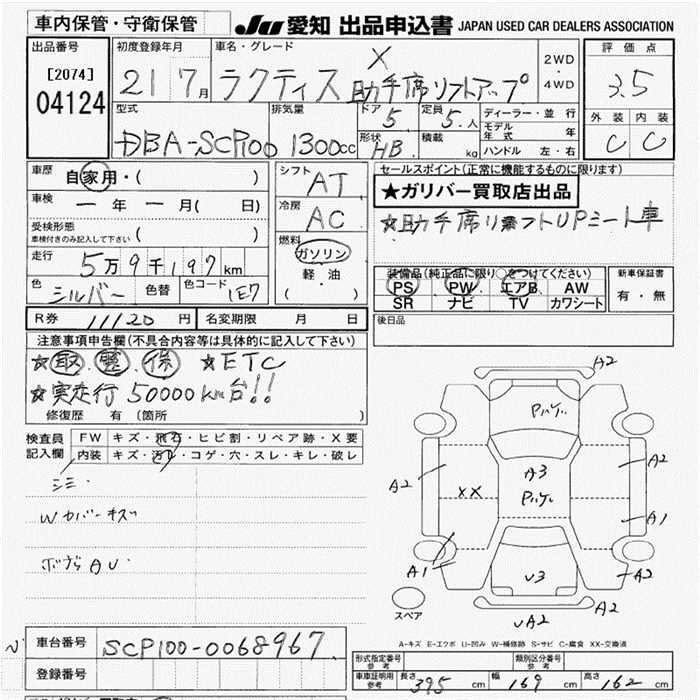 車内保管・守衛保管
JU 愛知 出品申込書 JAPAN USED CAR DEALERS ASSOCIATION
出品番号
[2074]
04124
初度登録年月
21 7月
車名・グレード
X
ラクティス 助手席リフトアップ
2WD
4WD
評価点
3.5
外装 内装
C C
型式
DBA-SCP100
排気量
1300cc
ドア
5
形状
HB
定員
5人
積載
kg
ディーラー・並行
モデル年式 年
ハンドル 左・右
車歴
自家用・( )
車検
一年 一月( 日)
受検形態
車検付きのみ記入して下さい ( )
走行
5万9千197km
色
シルバー
色替
色コード
1E7
シフト
AT
冷房
AC
燃料
ガソリン
軽・油
( )
セールスポイント(正常に機能するものに限ります)
★ガリバー買取店出品
☆助手席リフトUPシート車
装備品(純正品に限り○をつけてください)
PS PW エアB AW
SR ナビ TV カワシート
新車保証書
有・無
R券 11120円
名変期限 月 日
後日品
注意事項申告欄(不具合内容等は具体的に記入して下さい)
☆取 保 ☆ETC
☆実走行50000km台!!
修復歴 有 (箇所 )
検査員記入欄
FW キズ・飛石・ヒビ割・リペア跡・X要
内装 キズ・汚レ・コゲ・穴・スレ・キレ・破レ
シミ・
Wカバーキズ
A2
A2
A2
XX
A3
A1
A1
A2
U3
A2
UA2
スペア
A-キズ E-エクボ U-凹み W-補修跡 S-サビ C-腐食 XX-交換済
車台番号
SCP100-0068967
登録番号
形式指定番号
参考
類別区分番号
参考
車庫証明用
参考
長さ 395cm 幅 169cm 高さ 162cm